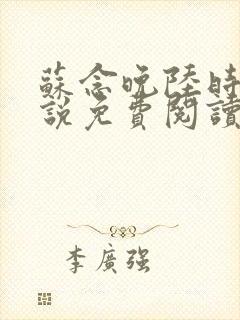 蘇念晚陸時
說免費閱讀
李廣强